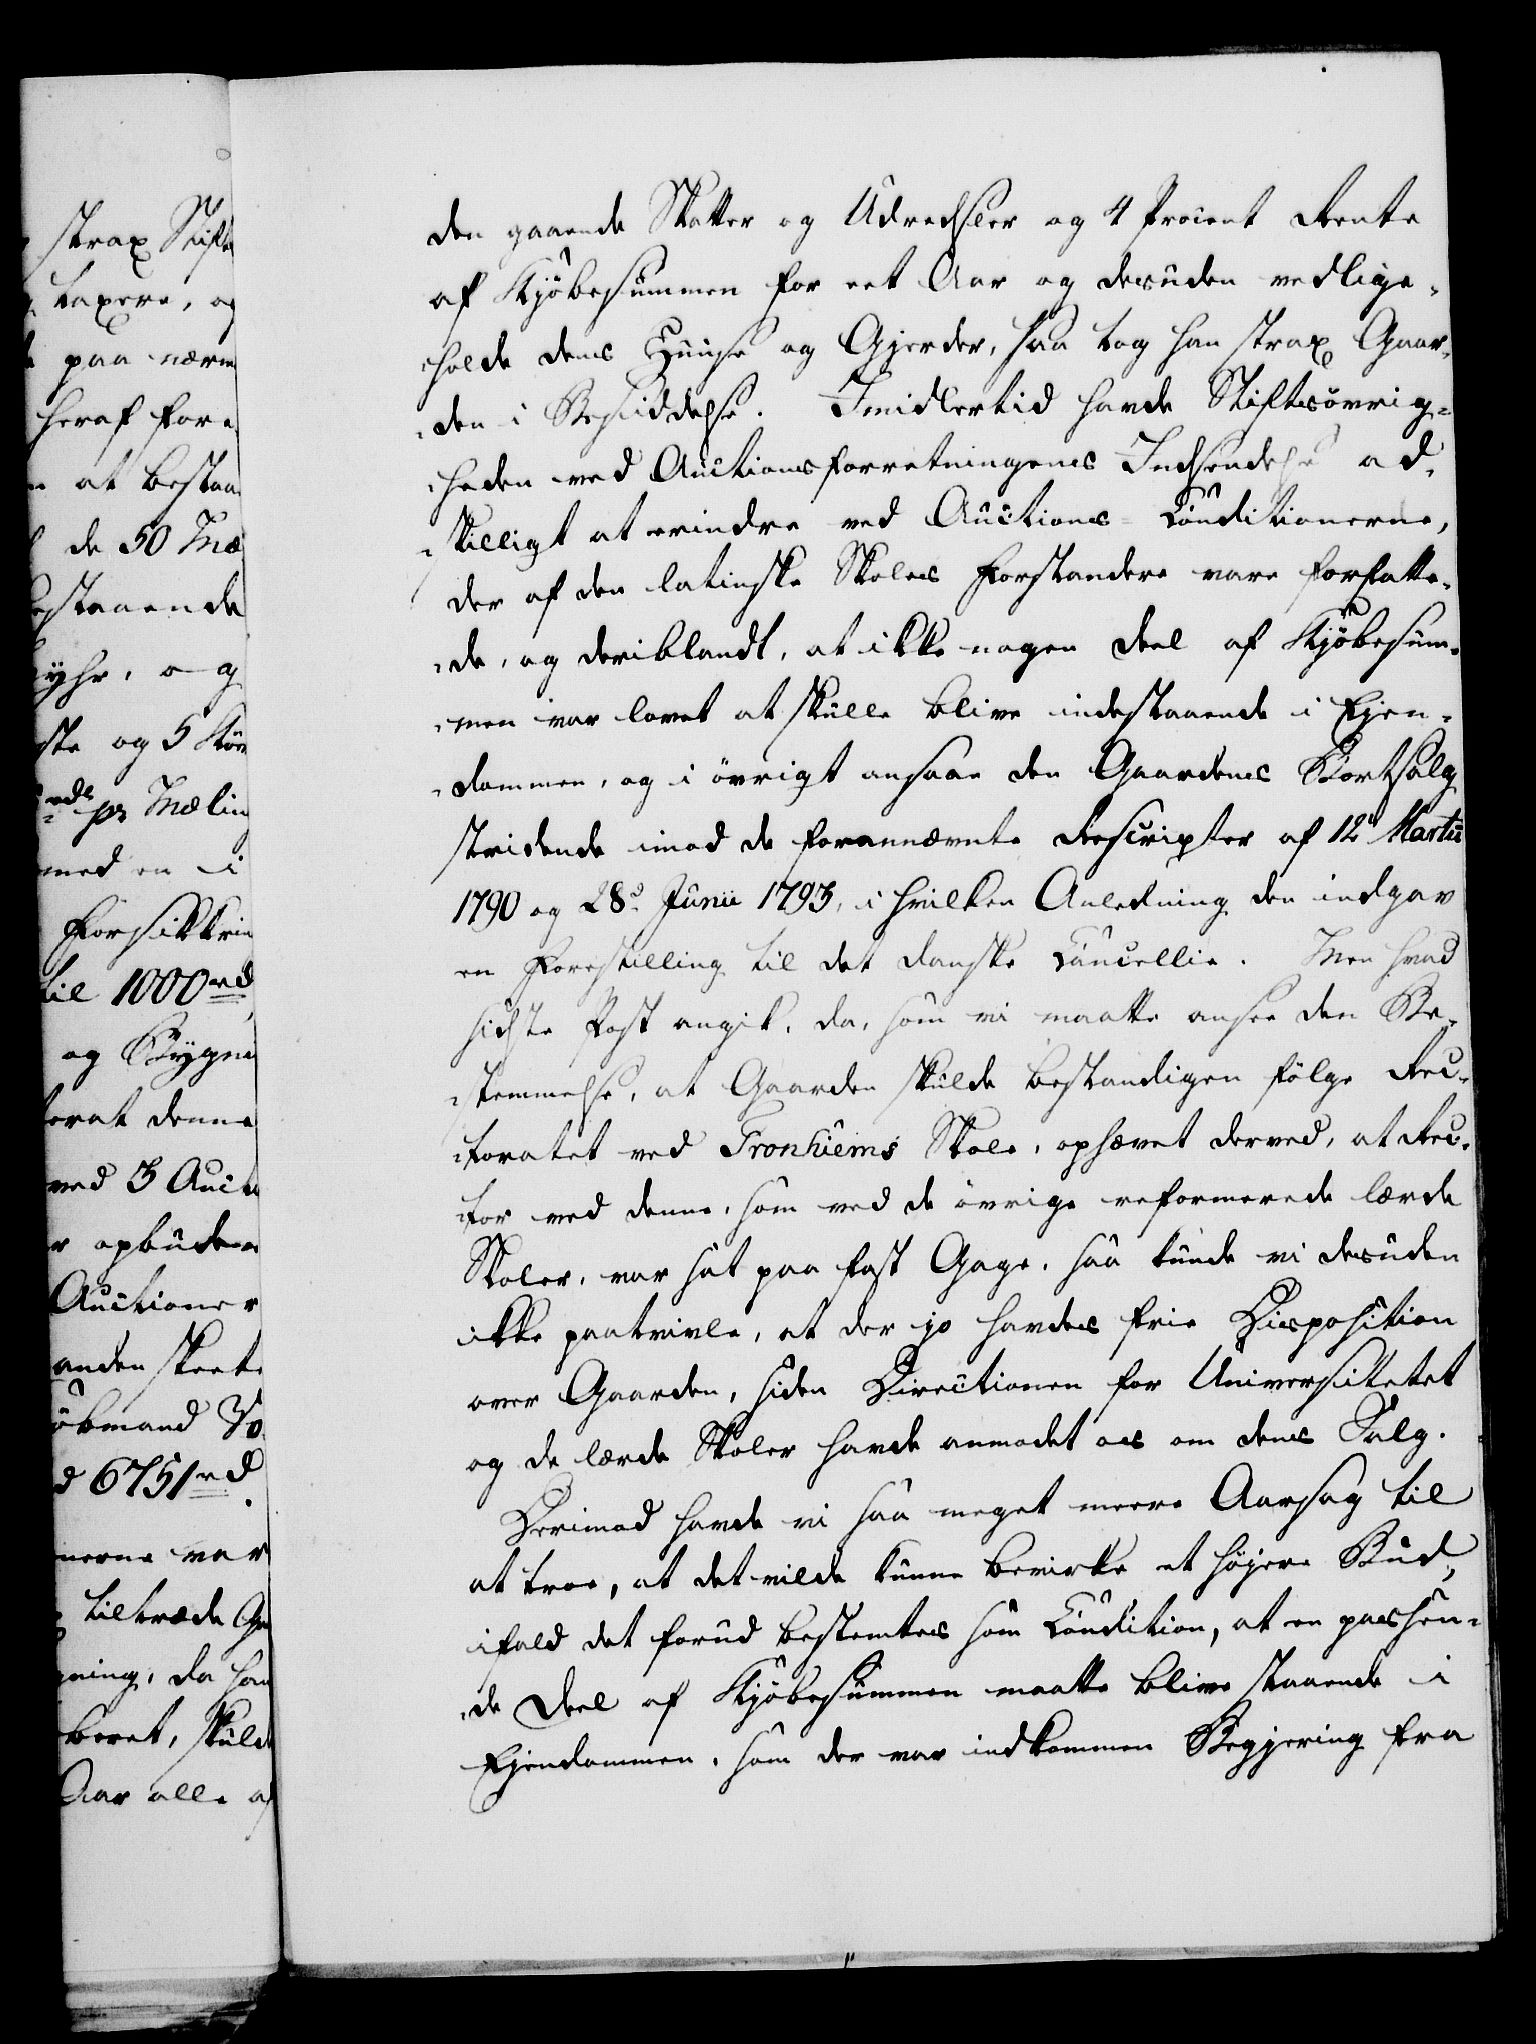 strax Stift
taxere, og
paa nærm
heraf for¬
at bestaa
de 50 Mæ
estaaende
byhr, og
ste og 5 Kör
rds pr Mæling
med en i
Forsikkrin
til 1000 rd
og Bygni
orat denne
ved 3 Auct
r opbudene
Auctioner
anden skeete
öbmand Jo
d 6751 rd.
nerne var
tiltræde Ga
gning, da han
beret, skulde
Aar alle af
den gaaende Skatter og Udredsler og 4 Procent Rente
af Kjöbesummen for eet Aar og desuden vedlige-
holde dens Huuse og Gjerder, saa tog han strax Gaar-
den i Besiddelse. Imidlertid havde Stiftsövrig-
heden ved Auctionsforretningens Indsendelse ad-
skilligt at erindre ved Auctions-Conditionerne,
der af den latinske Skoles Forstandere vare forfatte-
de, og deriblandt, at ikke nogen Deel af Kjöbesum-
men var lovet at skulle blive indestaaende i Ejen-
dommen, og i övrigt ansaae den Gaardens Bortsalg
stridende imod de forannævnte Rescripter af 12te Martii
1790 og 28d. Junii 1793, i hvilken Anledning den indgav
en Forestilling til det danske Cancellie. Men hvad
sidste Post angik, da, som vi maatte ansee den Be-
stemmelse, at Gaarden skulde bestandigen fölge Rec-
toratet ved Tronhiems Skole, ophævet derved, at Rec-
tor ved denne, som ved de övrige reformerede lærde
Skoler, var sat paa fast Gage, saa kunde vi desuden
ikke paatvivle, at der jo havdes frie Disposition
over Gaarden, siden Directionen for Universitetet
og de lærde Skoler havde anmodet os om dens Salg.
Derimod havde vi saa meget meere Aarsag til
at troe, at det vilde kunne bevirke et höjere Bud,
ifald det forud bestemtes som Condition, at en passen-
de Deel af Kjöbesummen maatte blive staaende i
Ejendommen, som der var indkommen Begjering fra